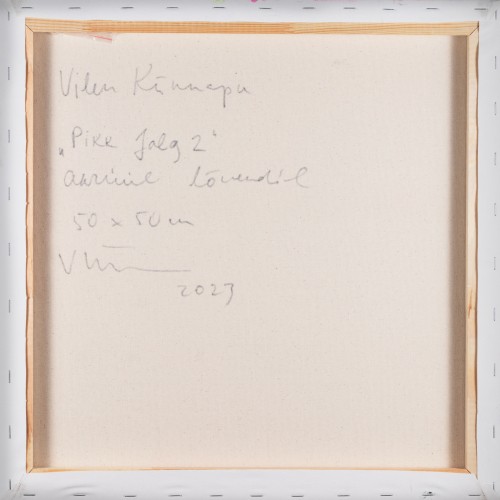 Vilen Künnapu
„Pikk Jalg 2“
akrüül lõuendil
50 x 50 cm
2023